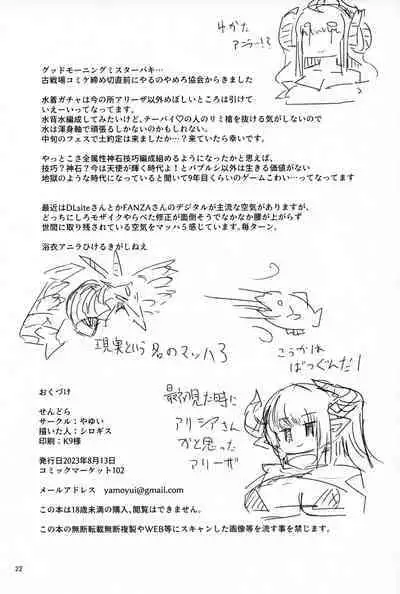 ゆかた
アニラー!?
グッドモーニングミスターバキ…
古戦場コミケ締め切直前にやるのやめろ協会からきました
水着ガチャは今の所アリーザ以外めぼしいところは引けて
いえーいってなってます。
水背水編成してみたいけど、テーバイ♡の人のリミ槍を抜ける気がしないので
水は渾身軸で頑張るしかないのかもしれない。
中旬のフェスで土約定は来ましたか…？来ていたら幸いです。
やっとこさ全属性神石技巧編成組めるようになったかと思えば、
技巧？神石？今は天使が輝く時代よ！とバブルシ以外は生きる価値がない
地獄のような時代になっていると聞いて9年目くらいのゲームこわい…ってなってます。
最近はDLsiteさんとかFANZAさんのデジタルが主流な空気がありますが、
どっちにしろモザイクやらべた修正が面倒そうでなかなか腰が上がらず
世間に取り残されている空気をマッハ5感じています。毎ターン。
浴衣アニラひけるきがしねえ
現実という名のマッハ3
こうかは
ばつぐんだ！
最初見た時に
アリシアさん
かと思った
アリーザ
おくづけ
せんどら
サークル：やゆい
描いた人：シロギス
印刷：K9様
発行日2023年8月13日
コミックマーケット102
メールアドレス　yamoyui@gmail.com
この本は18歳未満の購入、閲覧はできません。
この本の無断転載無断複製やWEB等にスキャンした画像等を流す事を禁じます。
22